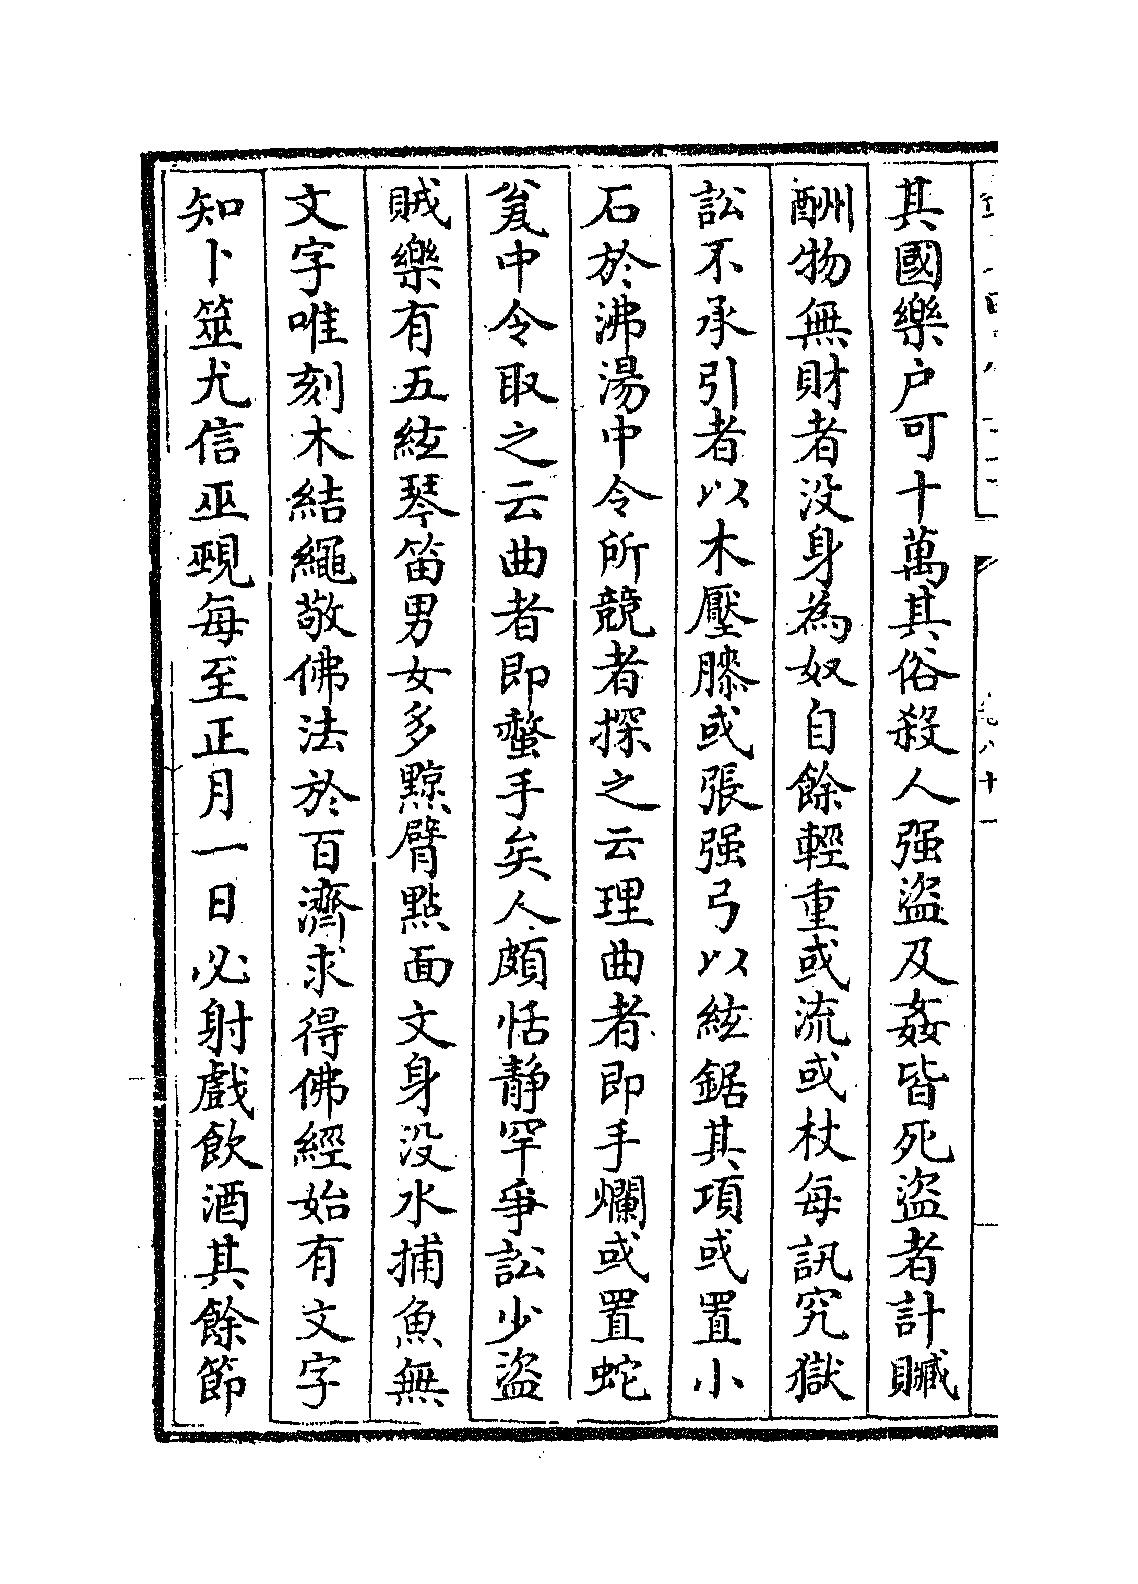 其國樂户可十萬其俗殺人强盜及姦皆死盜者計贓
酬物無財者没身為奴自餘輕重或流或杖每訊究獄
訟不承引者以木壓膝或張强弓以絃鋸其項或置小
石於沸湯中令所競者探之云理曲者即手爛或置蛇
瓮中令取之云曲者即螫手矣人頗恬静罕爭訟少盜
賊樂有五絃琴笛男女多黥臂點面文身没水捕魚無
文字唯刻木結繩敬佛法於百濟求得佛經始有文字
知卜筮尤信巫覡每至正月一日必射戲飲酒其餘節